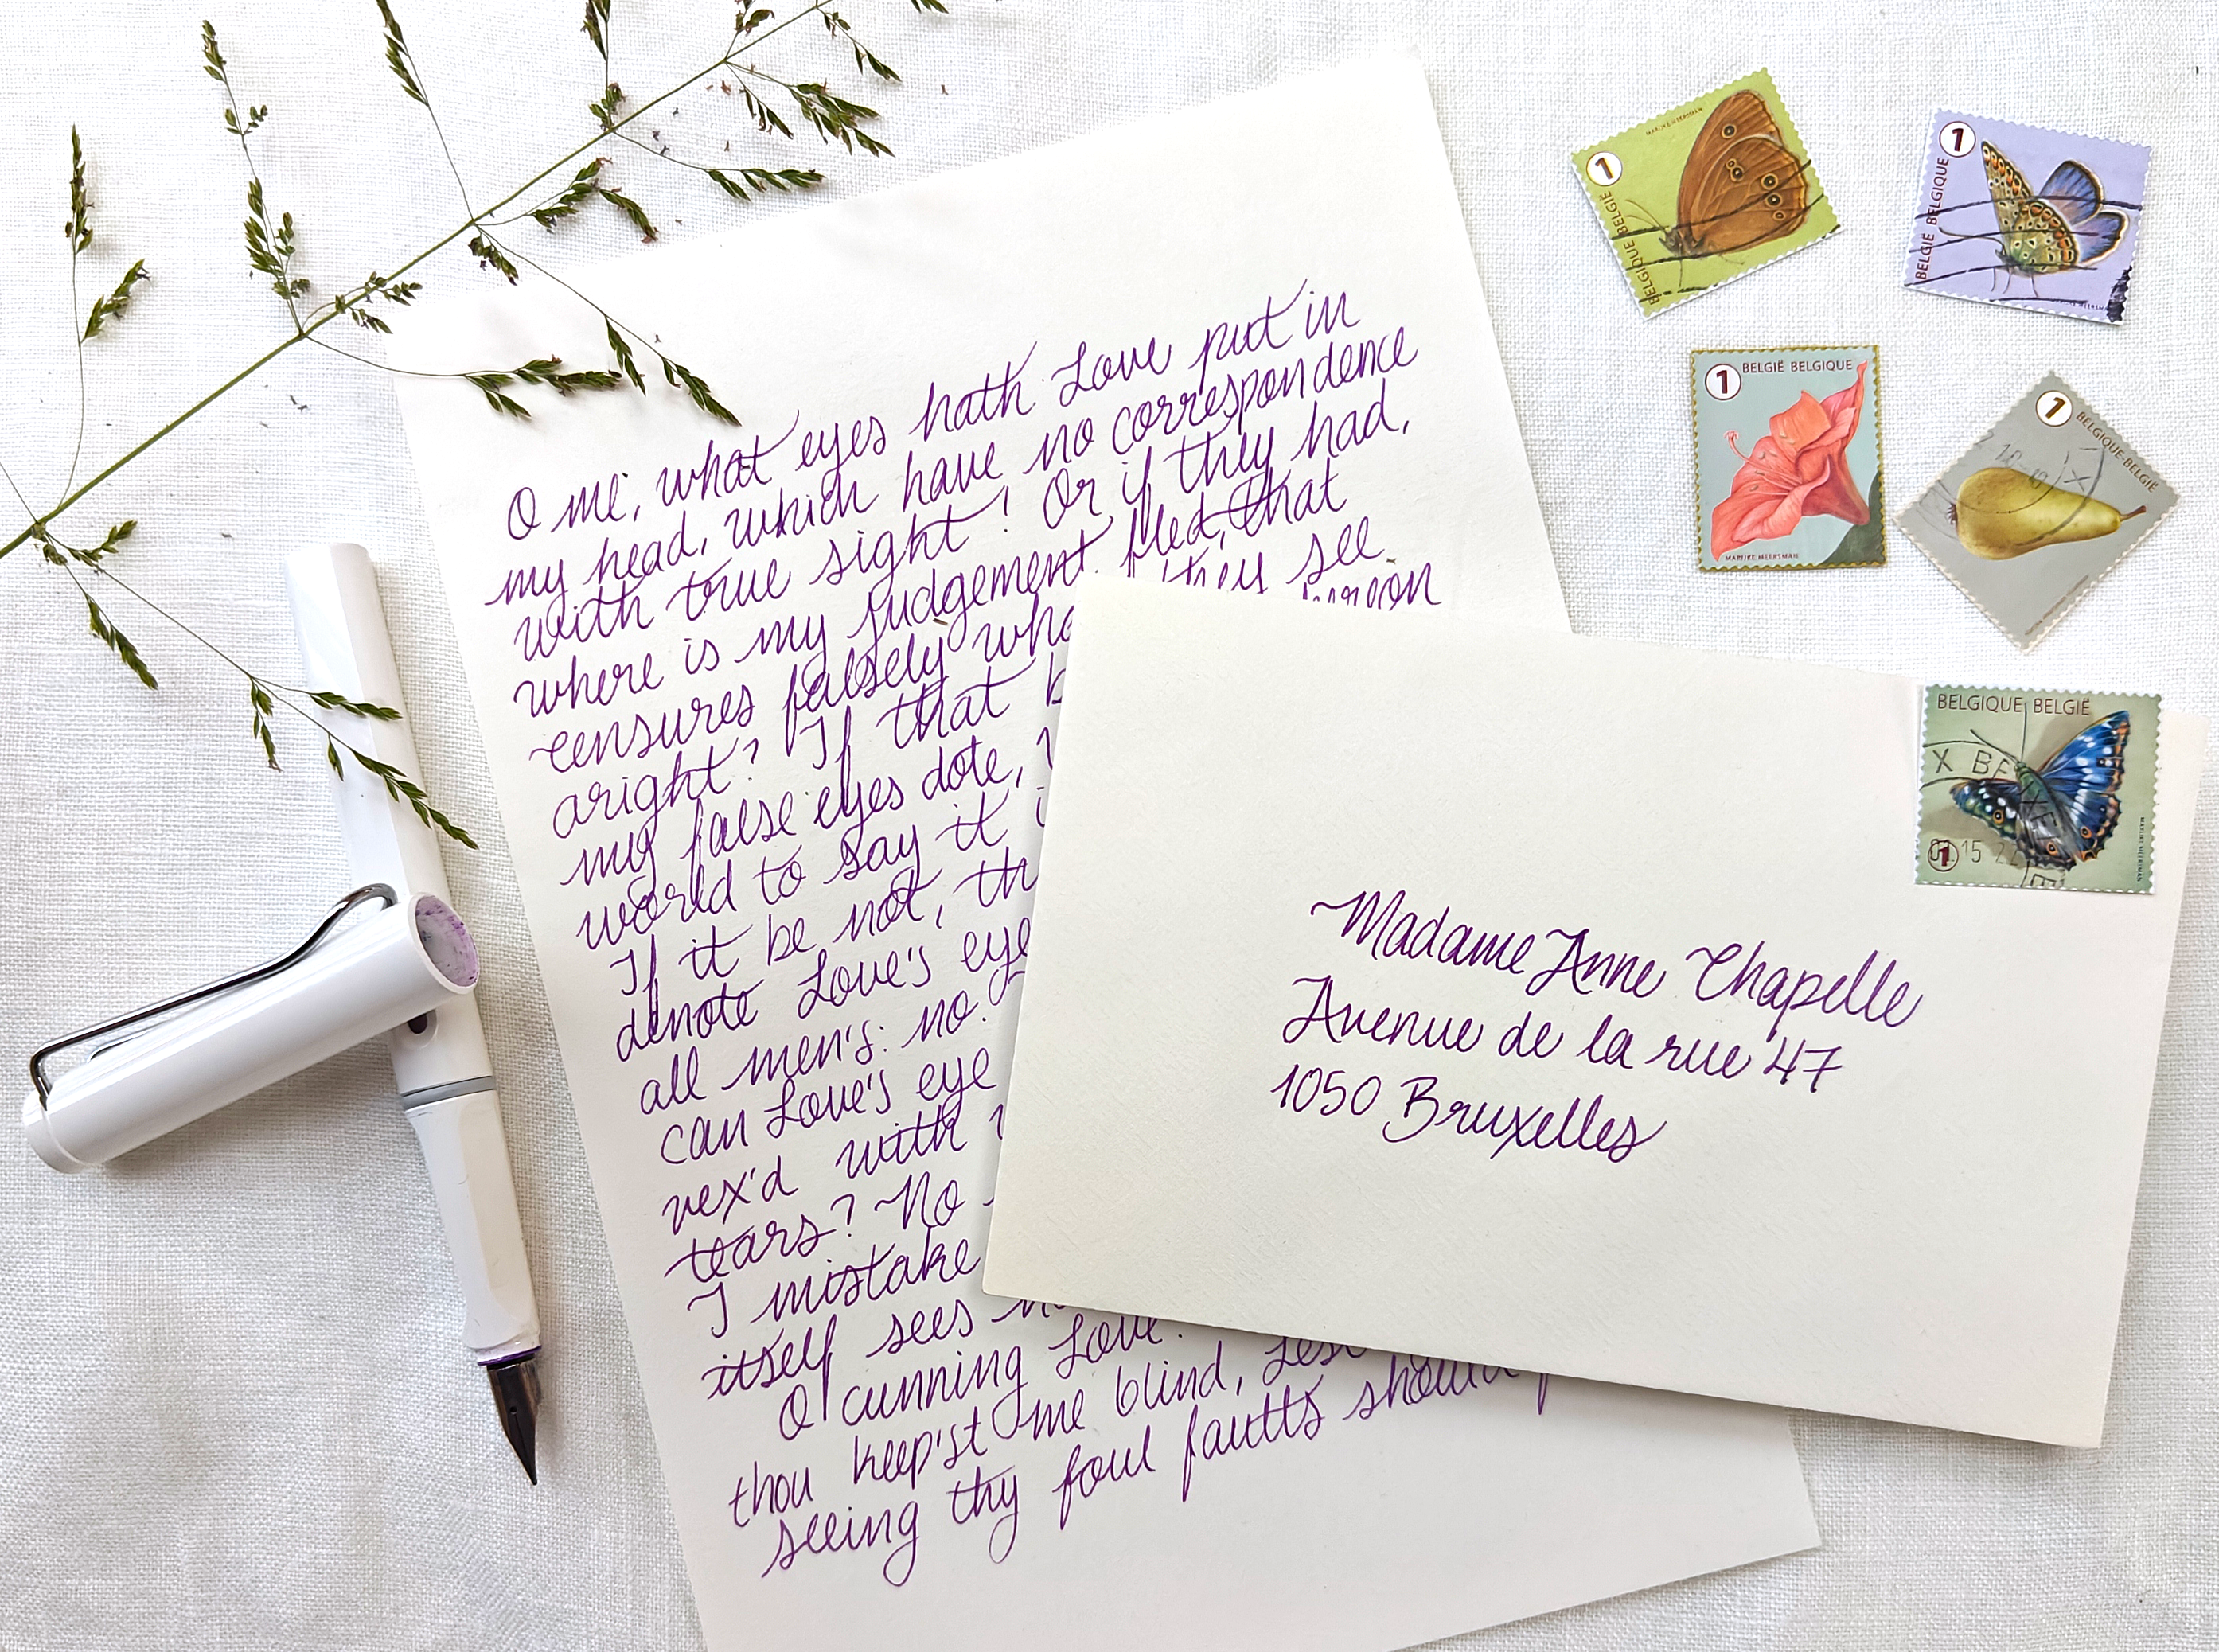 O me, what eyes hath Love put in
my head, which have no correspondence
with true sight! Or if they had,
where is my judgement fled, that
censures falsely they see
aright? If that
my false eyes dote,
world to say it
If it be not,
denote Love's eye
all men's: no.
can Love's eye
vex'd with
tears? No
I mistake
itself sees
O cunning Love!
thou keep'st me blind, Lest
seeing thy foul faults should
Madame Anne Chapelle
Avenue de la rue 47
1050 Bruxelles
1
BELGIQUE BELGIË
MARIJKE MEERSMAN
1
BELGIË BELGIQUE
1 BELGIË BELGIQUE
MARIJKE MEERSMAN
1
BELGIQUE-BELGIË
BELGIQUE BELGIË
X BE
1
15 22
MARIJKE MEERSMAN